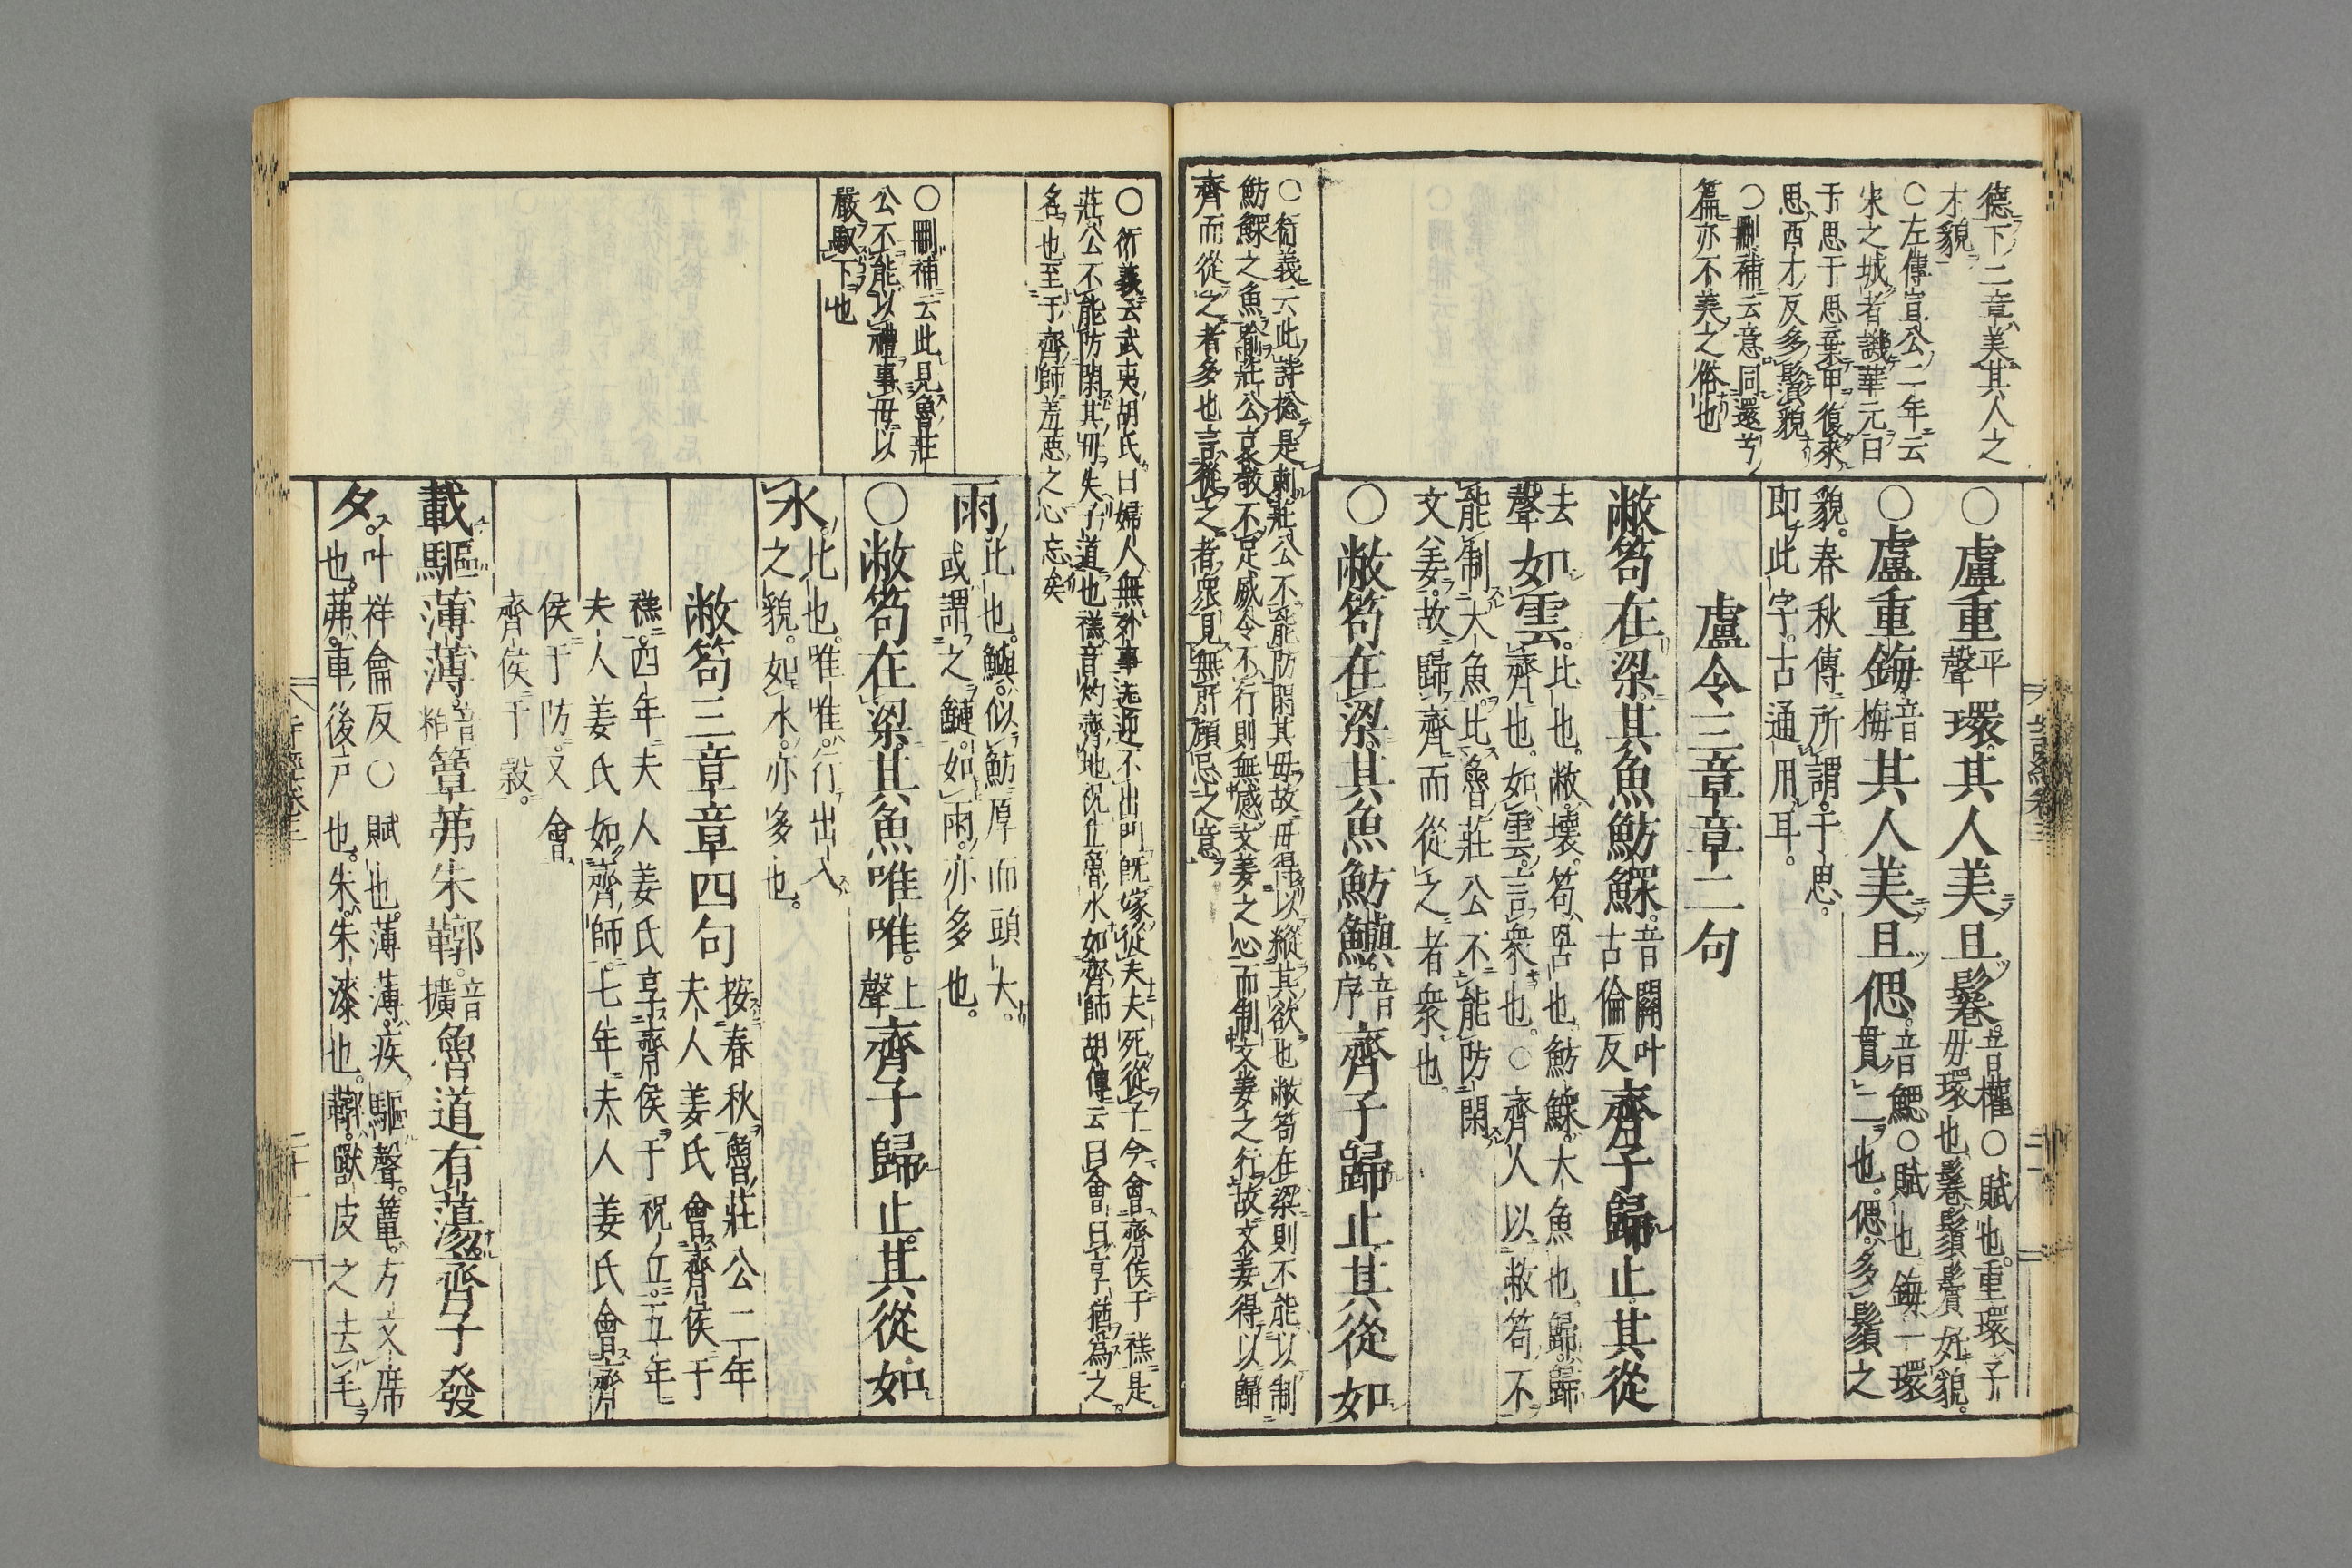 德下二章美其人之
才貌
○左傳宣公二年云
宋之城者譏華元曰
于思于思棄甲復來
思西才反多鬚貌
○刪補云意同還字
篇亦不美之俗也
○盧重平聲環其人美且鬈音權○賦也重環子
母環也鬈鬚鬢好貌
○盧重鋂音梅其人美且偲音鰓○賦也鋂一環
貫二也偲多鬚之
貌春秋傳所謂于思
即此字古通用耳
盧令三章章二句
敝笱在梁其魚魴鰥音關叶古倫反齊子歸止其從
去聲如雲比也敝壞笱罟也魴鰥大魚也歸歸
齊也如雲言衆也○齊人以敝笱不
能制大魚比魯莊公不能防閑
文姜故歸齊而從之者衆也
○敝笱在梁其魚魴鱮音序齊子歸止其從如
○衍義云此詩捴是刺莊公不能防閑其母故毋得以縱其欲也敝笱在梁則不能以制
魴鰥之魚喻莊公哀敬不足威令不行則無感文姜之心而制文姜之行故文姜得以歸
齊而從之者多也言從之者衆見無所顧忌之意
○衍義云武夷胡氏曰婦人無外事送迎不出門既嫁從夫夫死從子今會齊侯于禚是
莊公不能防閑其毋失子道也禚音灼齊地祝丘魯水如齊師胡傳云曰會曰享猶爲之
名也至于齊師羞惡之心忘矣
雨比也鱮似魴厚而頭大
或謂之鰱如雨亦多也
○刪補云此見魯莊
公不能以禮事母以
嚴馭下也
○敝笱在梁其魚唯唯上聲齊子歸止其從如
水比也唯唯行出入
之貌如水亦多也
敝笱三章章四句按春秋魯莊公二年
夫人姜氏會齊侯于
禚四年夫人姜氏享齊侯于祝丘五年
夫人姜氏如齊師七年夫人姜氏會齊
侯于防又會
齊侯于穀
載驅薄薄音粕簟茀朱鞹音擴魯道有蕩齊子發
夕叶祥龠反○賦也薄薄疾驅聲簟方文席
也茀車後戸也朱朱漆也鞹獸皮之去毛